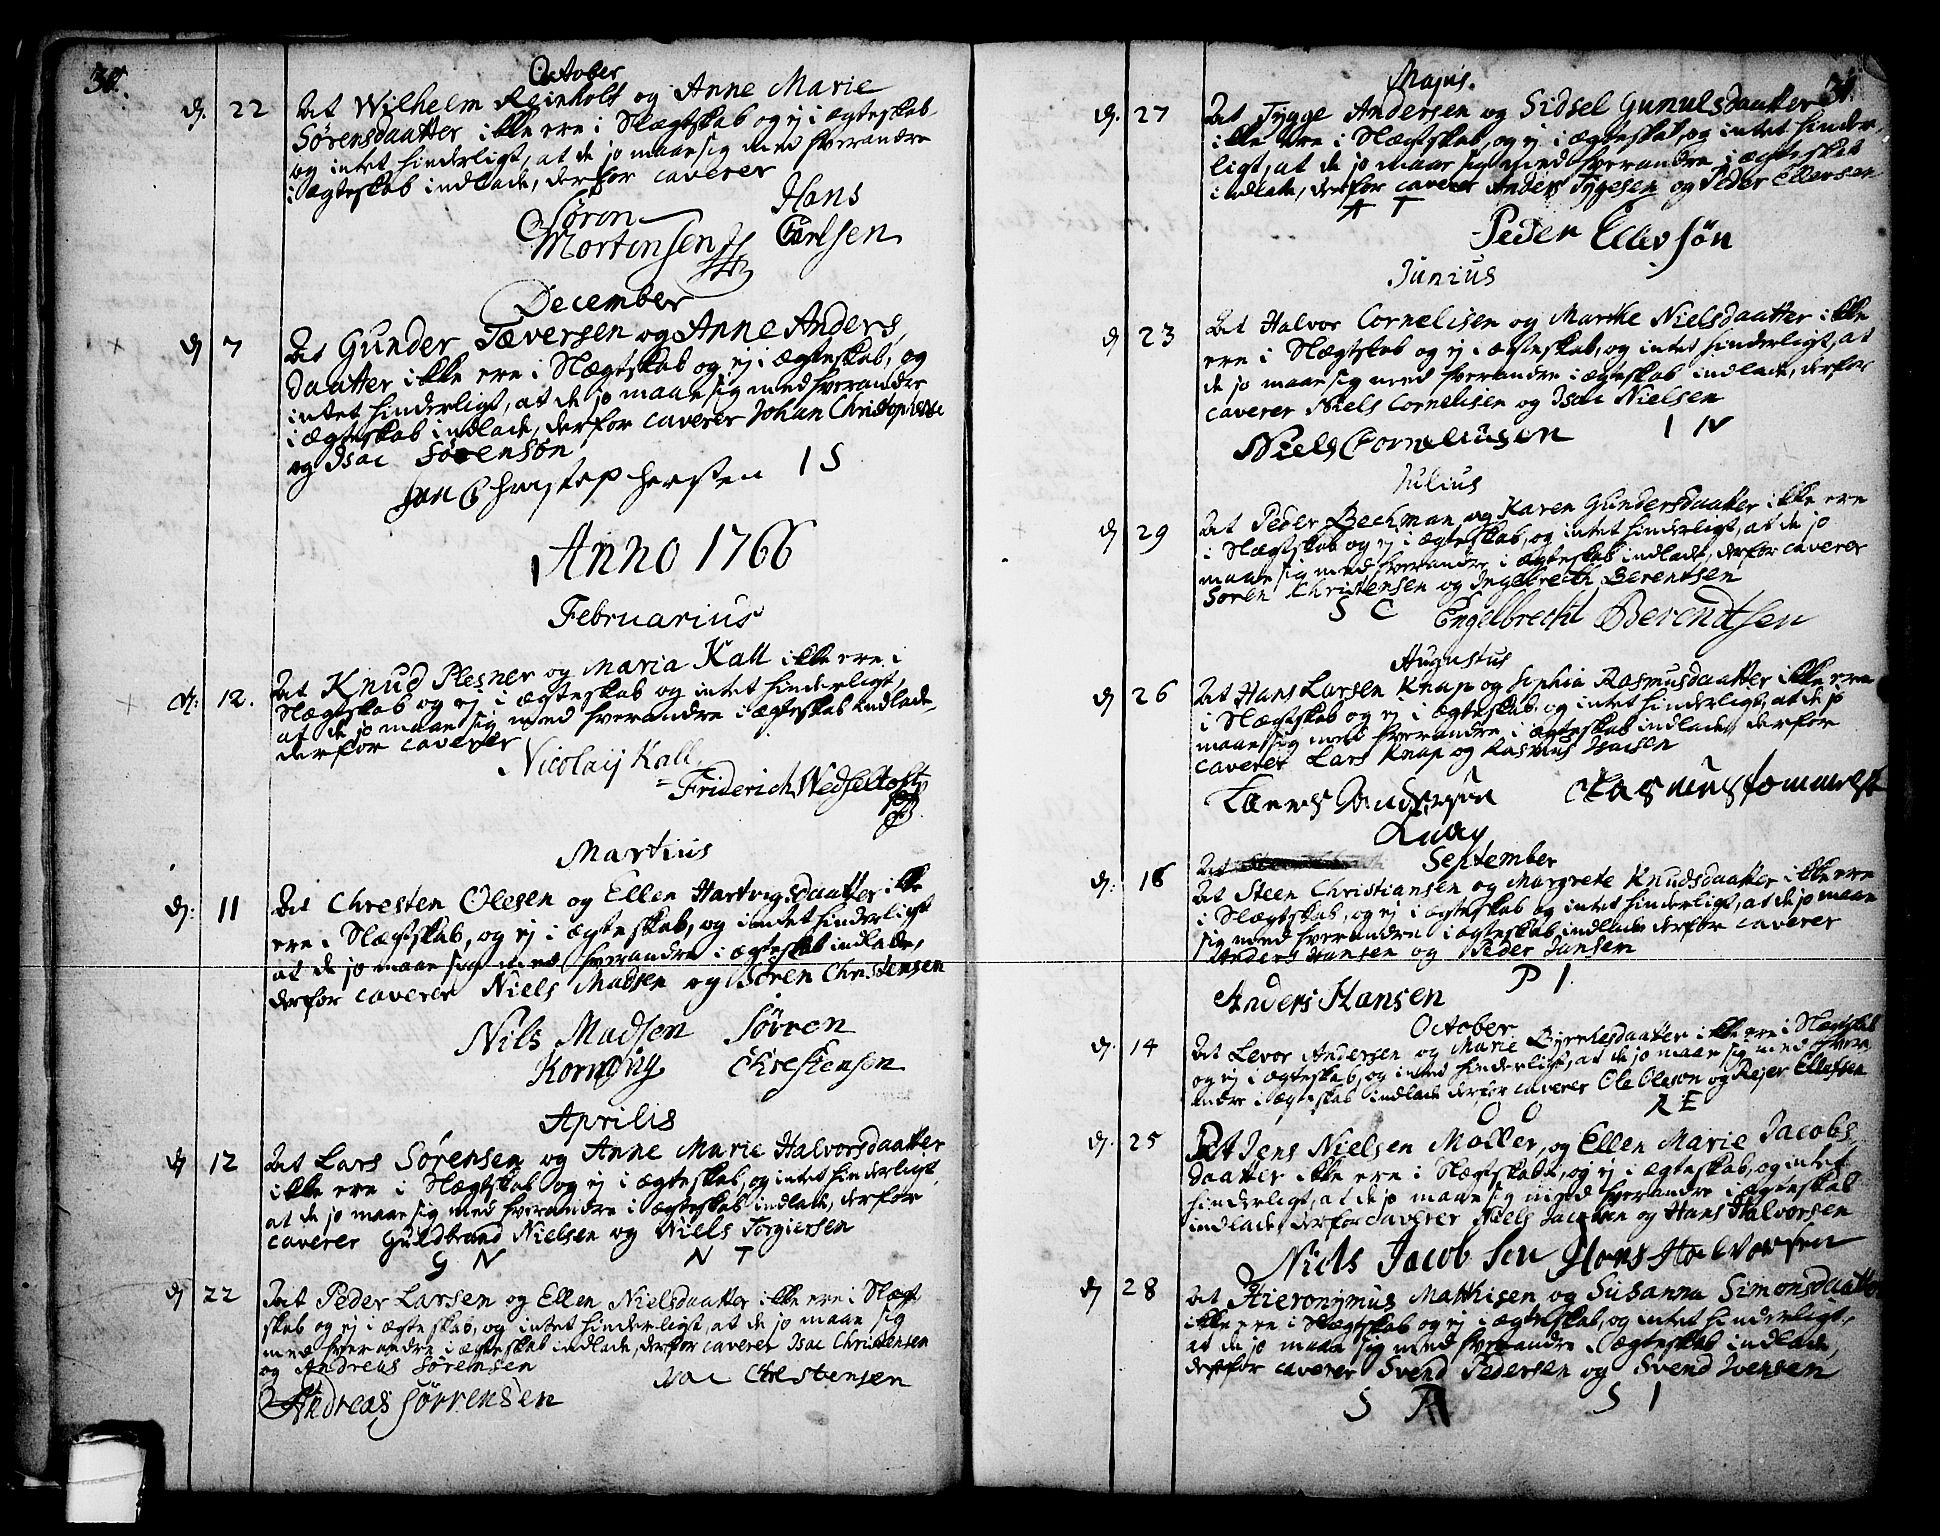 30.
October
d. 22 At Wilhelm Reinholt og Anne Marie
Sørensdaatter ikke ere i Slægtskab og ej i ægteskab
og intet hinderligt, at de jo maae sig med hverandre
i ægteskab indlade, derfor caverer
Søren Hans
Mortensen Carlsen
December
d 7 At Gunder Tæversen og Anne Anders
daatter ikke ere i Slægtskab og ej i ægteskab, og
intet hinderligt, at de jo maae sig med hverandre
i ægteskab indlade, derfor caverer Johan Christophersen
og Isac Sørensøn
Jan Christopheersten I S
Anno 1766
Februarius
d. 12. At Knud Plesner og Maria Kall ikke ere i
Slægtskab og ej i ægteskab og intet hinderligt,
at de jo maae sig med hverandre i ægteskab indlade,
derfor caverer
Nicolaij Kall
Friderich Wedseltoft
Martius
d. 11 At Chresten Olesen og Ellen Hartvigsdaatter ikke
ere i Slægtskab, og ej i ægteskab, og intet hinderligt
at de jo maae sig med hverandre i ægteskab indlade,
derfor caverer Niels Madsen og Søren Christensen
Nils Madsen Sørren
Kornning Chrestensen
Aprilis
d 12 At Lars Sørensen og Anne Marie Halvorsdaatter
ikke ere i Slægtskab og ej i ægteskab, og intet hinderligt,
at de jo maae sig med hverandre i ægteskab indlade, derfor
caverer Guldbrand Nielsen og Niels Torgiersen
G N N T
d 22 At Peder Larsen og Ellen Nielsdaatter ikke ere i Slægt
skab og ej i ægteskab, og intet hinderligt, at de jo maae sig
med hverandre i ægteskab indlade, derfor caverer Isac Christensen
og Andreas Sørensen
Isac Chrestensen
Andreas Sørrensen
31.
Majus.
d. 27 At Tygge Andersen og Sidsel Gunulsdaatter
ikke ere i Slægtskab, og ej i ægteskab, og intet hinder
ligt, at de jo maae sig med hverandre i ægteskab
indlade, derfor caverer Anders Tygesen og Peder Ellevsen
A T
Peder Ellevsøn
Junius
d 23 At Halvor Cornelisen og Marthe Nielsdaatter ikke
ere i Slægtskab og ej i ægteskab, og intet hinderligt, at
de jo maae sig med hverandre i ægteskab indlade, derfor
caverer Niels Cornelisen og Isac Nielsen
Niels Corneliusen I N
Julius
d 29 At Peder Bechman og Karen Gundersdaatter ikke ere
i Slægtskab og ej i ægteskab, og intet hinderligt, at de jo
maae sig med hverandre i ægteskab indlade, derfor caverer
Søren Christensen og Ingelbrecth Berentsen
S C Engelbrecht Berendtsen
Augustus
d 26 At Hans Larsen Knap og Sophia Rasmusdaatter ikke ere
i Slægtskab og ej i ægteskab og intet hinderligt, at de jo
maae sig med hverandre i ægteskab indlade, derfor
caverer Lars Knap og Rasmus Isacsen
September
d. 18 At
At Steen Christiansen og Margrete Knudsdaatter ikke ere
i Slægtskab, og ej i ægteskab og intet hinderligt, at de jo maae
sig med hverandre i ægteskab indlade derfor caverer
Anders Hansen og Peder Jansen
Anders Hansen P I.
October
d. 14 At Levor Andersen og Marie Byrnhesdaatter ikke ere i Slægtskab
og ej i ægteskab, og intet hinderligt, at de jo maae sig med hver
andre i ægteskab indlade derfor caverer Ole Oleson og Rejer Ellefsen
O O R E
d. 25 At Jens Nielsen Møller, og Ellen Marie Jacobs
daatter ikke ere i Slægtskab, og ej i ægteskab, og intet
hinderligt, at de jo maae sig med hverandre i ægteskab
indlade, derfor caverer Niels Jacobsen og Hans Halvorsen
Niels Jacobsen Hans Halvorsen
d 28 At Hieronymus Matthisen og Susanna Simonsdaatter
ikke ere i Slægtskab og ej i ægteskab, og intet hinderligt,
at de jo maae sig med hverandre i ægteskab indlade,
derfor caverer Svend Pedersen og Svend Ivensen
S P S I